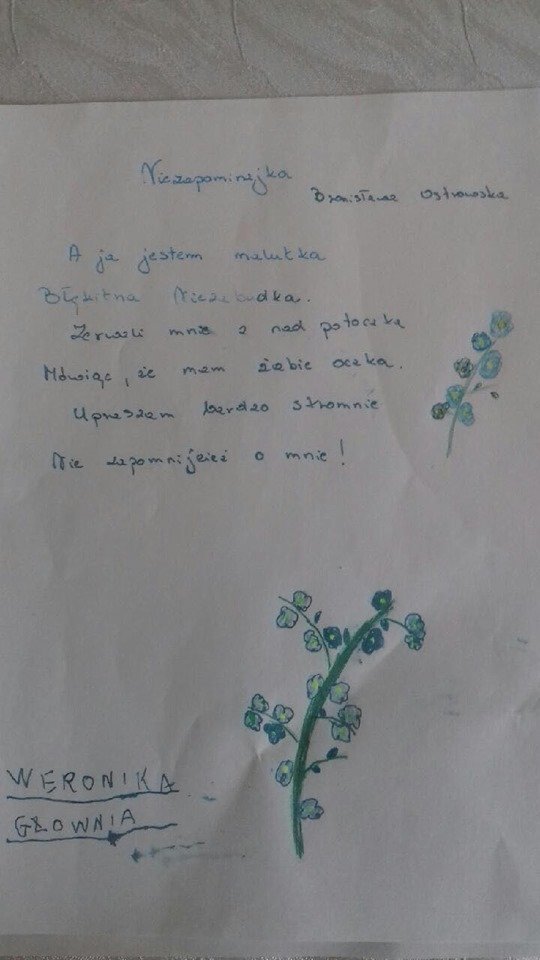 Niezapominajka
Bronisława Ostrowska
A ja jestem malutka
Błękitna Niezabudka.
Zerwali mnie z nad potoczka
Mówiąc, że mam żabie oczka.
Upraszam bardzo stromnie
Nie zapomnijcież o mnie!
WERONIKA
GŁOWNIA